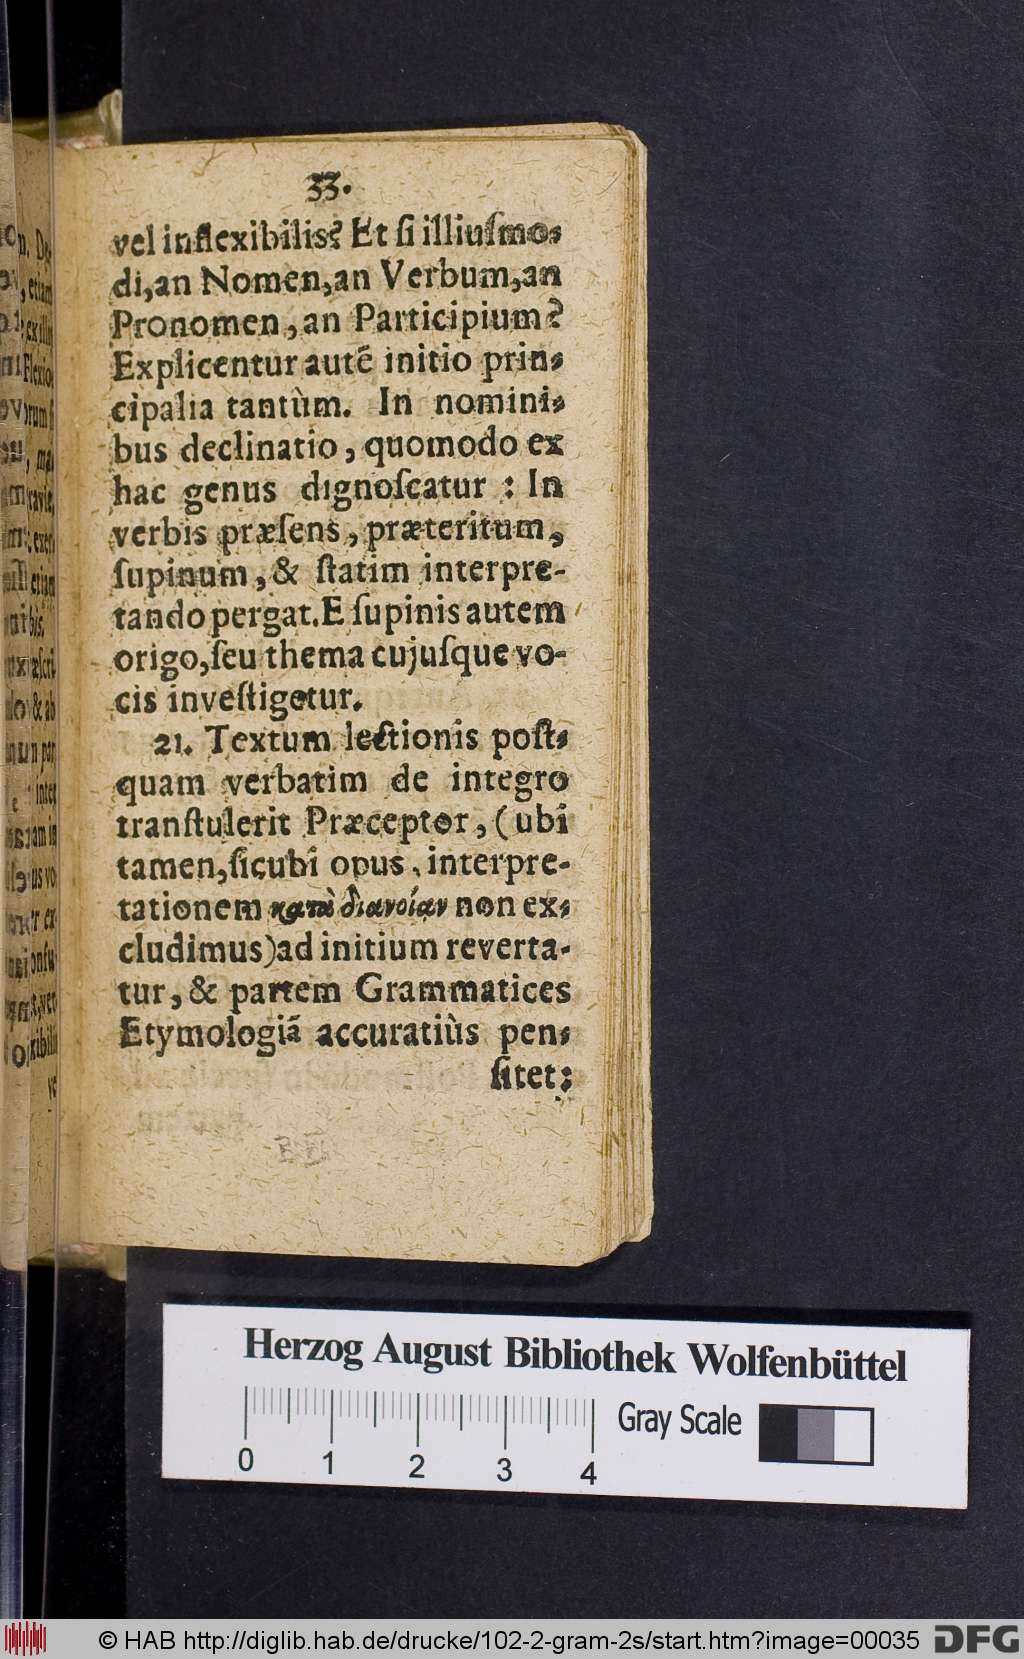 33.
vel inflexibilis? Et ſi illiuſmo⸗
di, an Nomen, an Verbum, an
Pronomen, an Participium?
Explicentur autē initio prin⸗
cipalia tantùm. In nomini⸗
bus declinatio, quomodo ex
hac genus dignoſcatur: In
verbis præſens, præteritum,
ſupinum, & ſtatim interpre-
tando pergat. E ſupinis autem
origo, ſeu thema cujuſque vo-
cis inveſtigetur.
21. Textum lectionis poſt⸗
quam verbatim de integro
tranſtulerit Præceptor, (ubi
tamen, ſicubi opus, interpre-
tationem κατὰ διανοίαν non ex⸗
cludimus) ad initium reverta-
tur, & partem Grammatices
Etymologiā accuratiùs pen⸗
ſitet:
Herzog August Bibliothek Wolfenbüttel
Gray Scale
0 1 2 3 4
© HAB http://diglib.hab.de/drucke/102-2-gram-2s/start.htm?image=00035
DFG